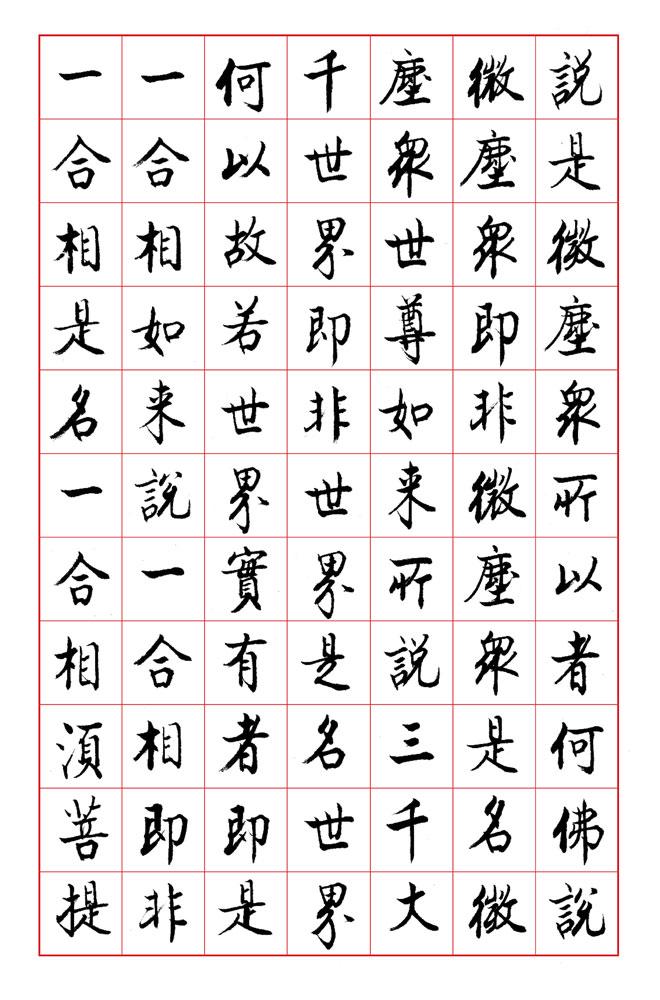 說是微塵衆所以者何佛說
微塵衆即非微塵衆是名微
塵衆世尊如来所說三千大
千世界即非世界是名世界
何以故若世界實有者即是
一合相如来說一合相即非
一合相是名一合相須菩提